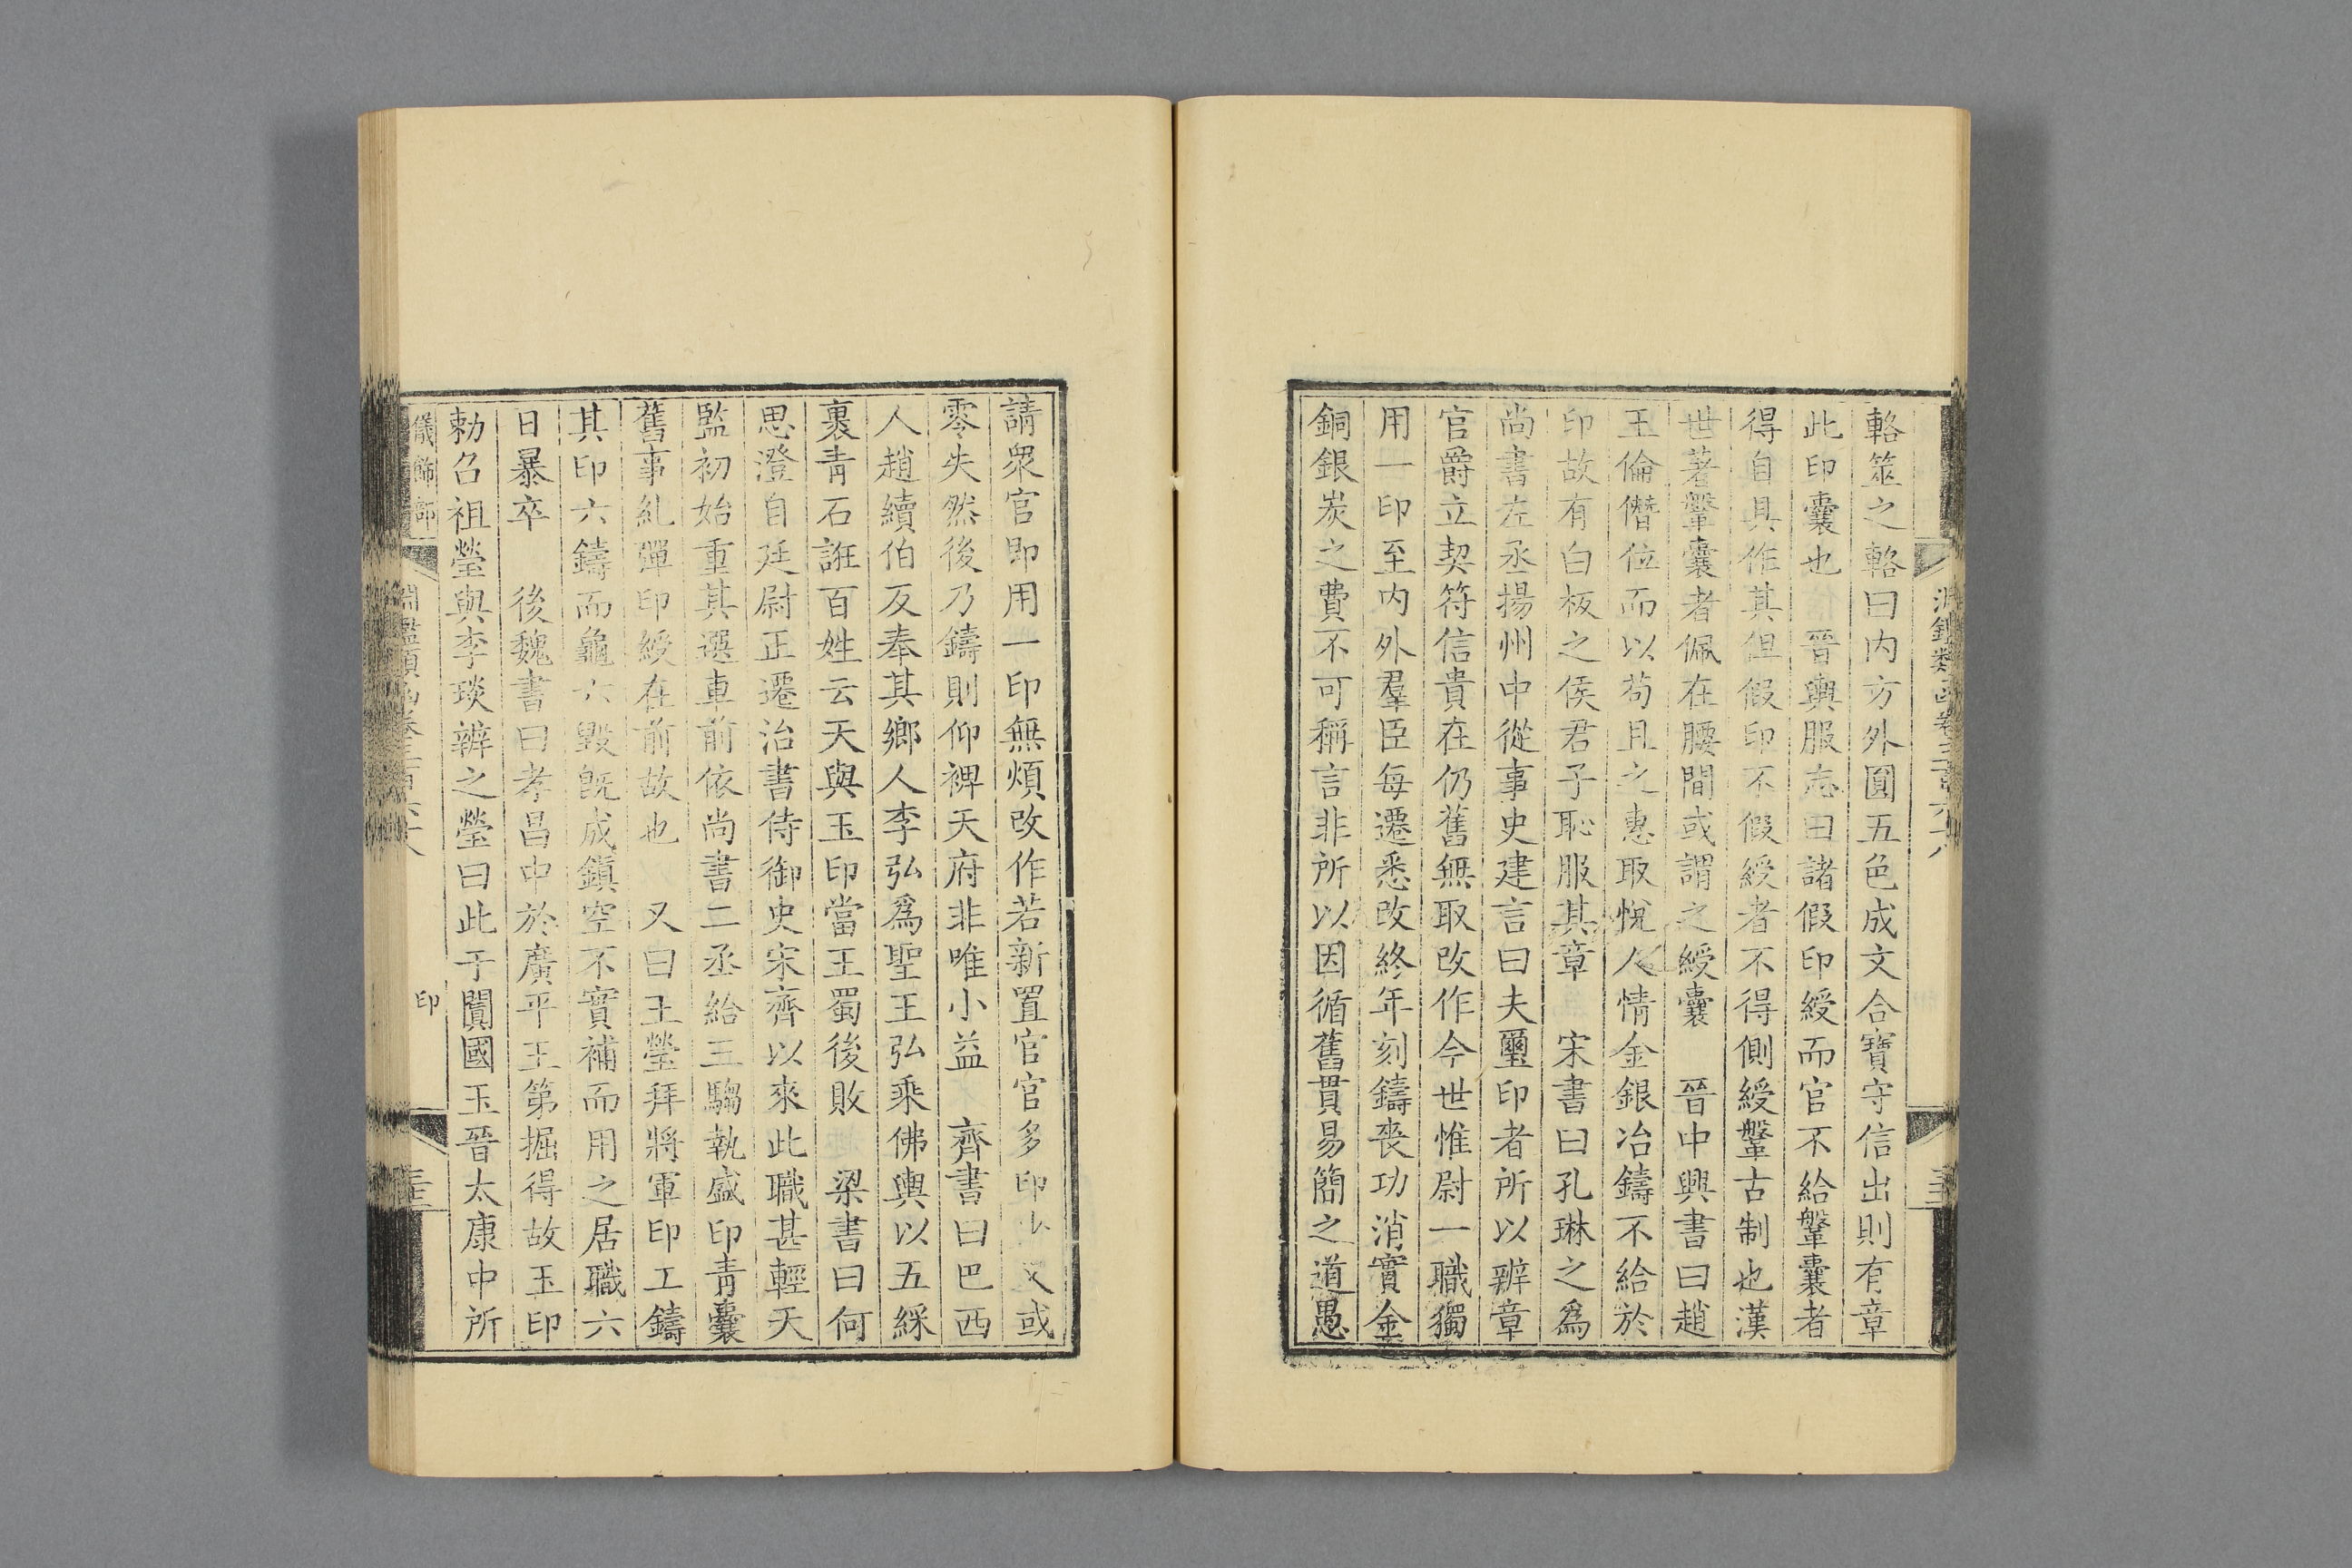 輅筮之輅曰内方外圓五色成文合寶守信出則有章
此印囊也　晉輿服志曰諸假印綬而官不給鞶囊者
得自具作其但假印不假綬者不得佩綬鞶古制也漢
世著鞶囊者佩在腰間或謂之綬囊　晉中興書曰趙
王倫僭位而以苟且之惠取悅人情金銀冶鑄不給於
印故有白板之侯君子恥服其章　宋書曰孔琳之爲
尚書左丞揚州中從事史建言曰夫璽印者所以辨章
官爵立契符信貴在仍舊無取改作今世惟尉一職獨
用一印至内外羣臣每遷悉改終年刻鑄喪功消實金
銅銀炭之費不可稱言非所以因循舊貫易簡之道愚
請衆官即用一印無煩改作若新置官官多印少文或
零失然後乃鑄則仰裨天府非唯小益　齊書曰巴西
人趙續伯反奉其鄉人李弘爲聖王弘乘佛輿以五綵
裹青石誑百姓云天與玉印當王蜀後敗　梁書曰何
思澄自廷尉正遷治書侍御史宋齊以來此職甚輕天
監初始重其選車前依尚書二丞給三騶執盛印青囊
舊事糺彈印綬在前故也　又曰王瑩拜將軍印工鑄
其印六鑄而龜六毀既成鎮空不實補而用之居職六
日暴卒　後魏書曰孝昌中於廣平王第掘得故玉印
勑召祖瑩與李琰辨之瑩曰此于闐國玉晉太康中所
儀飾部
淵鑑類函卷三百六十八
印